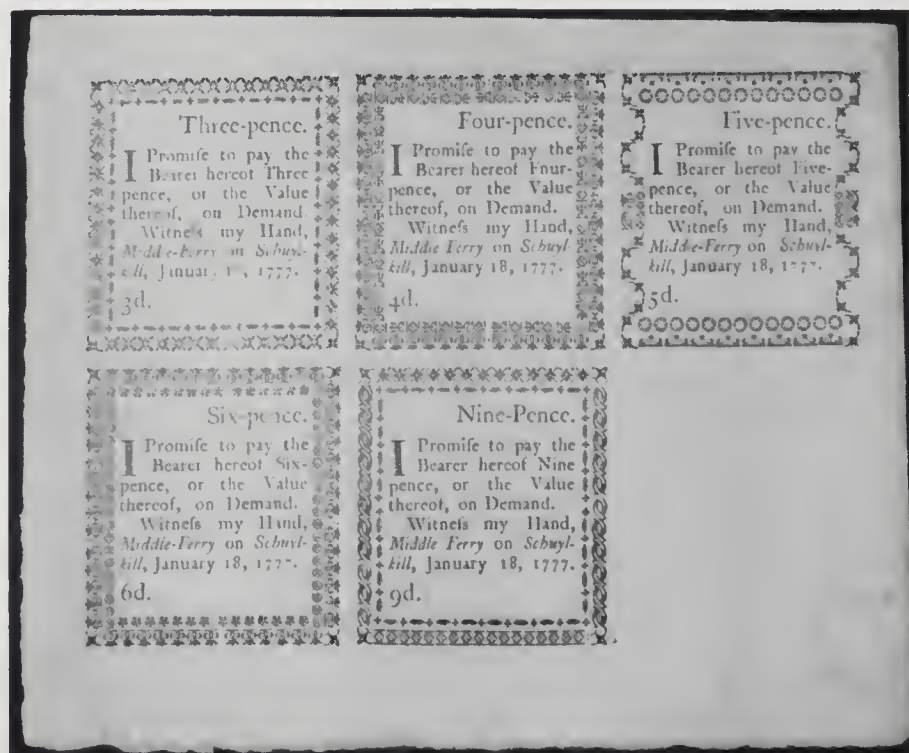 Three-pence.
I Promiſe to pay the
Bearer hereof Three
pence, or the Value
thereof, on Demand.
Witneſs my Hand,
Middle-Ferry on Schuyl-
kill, January 1777.
3d.
Four-pence.
I Promiſe to pay the
Bearer hereof Four-
pence, or the Value
thereof, on Demand.
Witneſs my Hand,
Middle Ferry on Schuyl-
kill, January 18, 1777.
4d.
Five-pence.
I Promiſe to pay the
Bearer hereof Five-
pence, or the Value
thereof, on Demand.
Witneſs my Hand,
Middle-Ferry on Schuyl-
kill, January 18, 1777.
5d.
Six-pence.
I Promiſe to pay the
Bearer hereof Six-
pence, or the Value
thereof, on Demand.
Witneſs my Hand,
Middle-Ferry on Schuyl-
kill, January 18, 1777.
6d.
Nine-Pence.
I Promiſe to pay the
Bearer hereof Nine
pence, or the Value
thereof, on Demand.
Witneſs my Hand,
Middle Ferry on Schuyl-
kill, January 18, 1777.
9d.